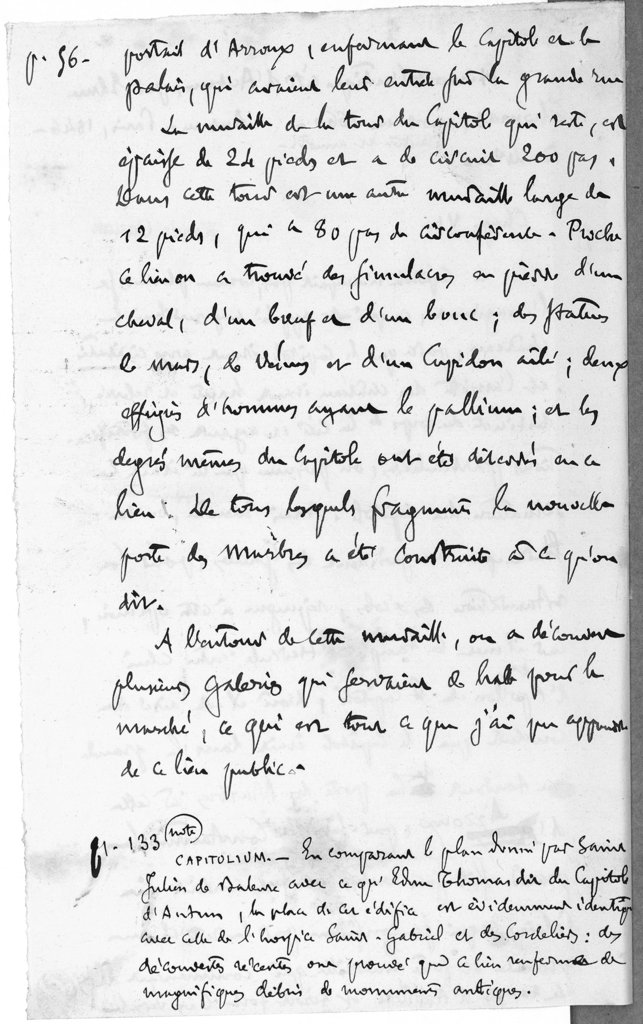 p. 56 - portait d'Arroux, enfermant le Capitole et le
palais, qui avaient leur entrée sur la grande rue
La muraille de la tour du Capitole qui reste, est
épaisse de 24 pieds et a de circuit 200 pas.
Dans cette tour est une autre muraille large de
12 pieds, qui a 80 pas de circonférence. Proche
ce lieu on a trouvé des simulacres en pierre d'un
cheval, d'un bœuf et d'un bouc ; des statues
de Mars, de Vénus et d'un Cupidon ailé ; deux
effigies d'hommes ayant le pallium ; et les
degrés mêmes du Capitole ont été déterrés en ce
lieu. De tous lesquels fragments la nouvelle
porte des Marbres a été construite à ce qu'on
dit.
A l'entour de cette muraille, on a découvert
plusieurs galeries qui servaient de halle pour le
marché, ce qui est tout ce que j'ai pu apprendre
de ce lieu public.
p. 133 note
CAPITOLIUM. - En comparant le plan donné par Saint
Julien de Baleure avec ce qu'Edme Thomas dit du Capitole
d'Autun, la place de cet édifice est évidemment identique
avec celle de l'hospice Saint-Gabriel et des Cordeliers : des
découvertes récentes ont prouvé que ce lieu renferme de
magnifiques débris de monuments antiques.